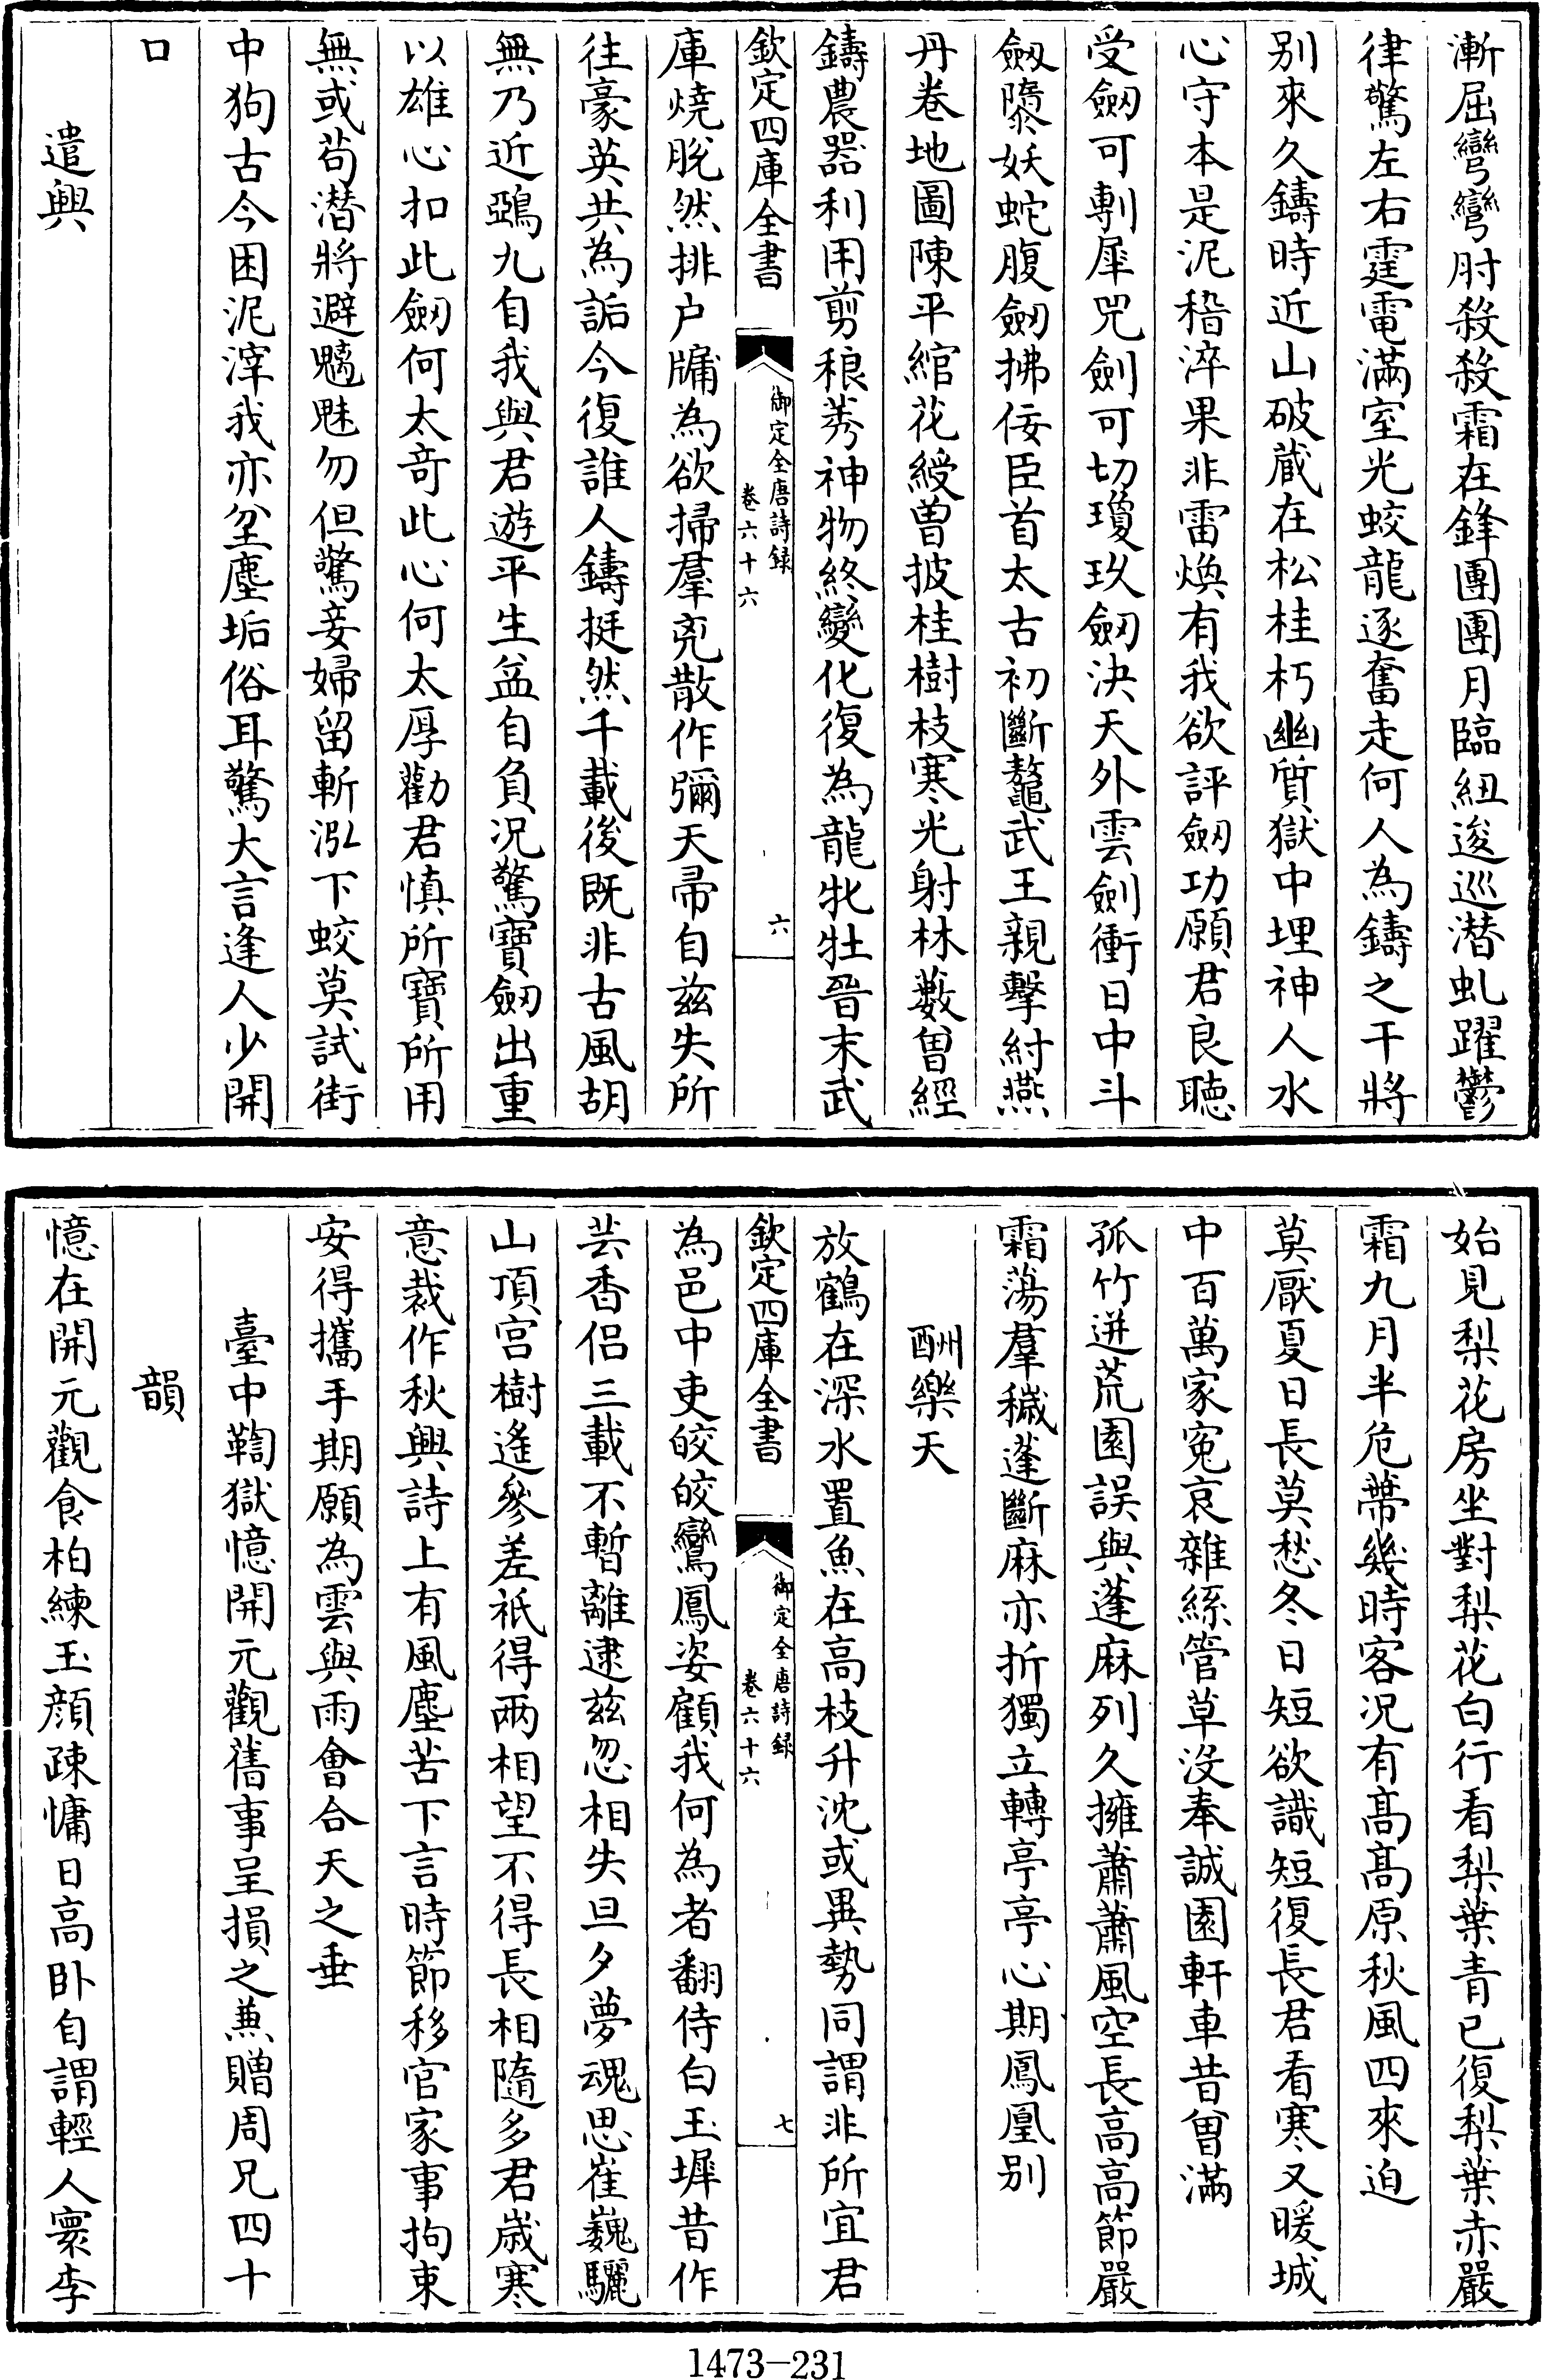 漸屈彎彎肘殺殺霜在鋒團團月臨紐逡巡潛虬躍鬱
律驚左右霆電滿室光蛟龍逐奮走何人為鑄之干將
別來久鑄時近山破藏在松桂朽幽質獄中埋神人水
心守本是泥稽淬果非雷煥有我欲評劒功願君良聽
受劒可剸犀兕劍可切瓊玖劒決天外雲劍衝日中斗
劔隳妖蛇腹劒拂佞臣首太古初斷鼇武王親擊紂燕
丹卷地圖陳平綰花綬曽披桂樹枝寒光射林藪曽經
鑄農器利用剪稂莠神物終變化復為龍牝牡晉末武
欽定四庫全書
御定全唐詩錄
卷六十六
六
庫燒脫然排户牖為欲掃羣兇散作彌天帚自兹失所
往豪英共為詬今復誰人鑄挺然千載後既非古風胡
無乃近鵶九自我與君遊平生益自負況驚寶劒出重
以雄心扣此劒何太奇此心何太厚勸君慎所寶所用
無或苟潛將避魑魅勿但驚妾婦留斬泓下蛟莫試街
中狗古今困泥滓我亦坌塵垢俗耳驚大言逢人少開
口
遣興
始見梨花房坐對梨花白行看梨葉青已復梨葉赤嚴
霜九月半危蔕幾時客況有高高原秋風四來迫
莫厭夏日長莫愁冬日短欲識短復長君看寒又暖城
中百萬家寃哀雜絲管草沒奉誠園軒車昔曽滿
孤竹迸荒園誤與蓬麻列久擁蕭蕭風空長高高節嚴
霜蕩羣穢蓬斷麻亦折獨立轉亭亭心期鳳凰別
酬樂天
放鶴在深水置魚在高枝升沈或異勢同謂非所宜君
欽定四庫全書
御定全唐詩錄
卷六十六
七
為邑中吏皎皎鸞鳳姿顧我何為者翻侍白玉墀昔作
芸香侣三載不暫離逮兹忽相失旦夕夢魂思崔巍驪
山頂宫樹遙參差祇得兩相望不得長相隨多君歲寒
意裁作秋興詩上有風塵苦下言時節移官家事拘束
安得攜手期願為雲與雨會合天之垂
臺中鞫獄憶開元觀舊事呈損之兼贈周兄四十
韻
憶在開元觀食柏練玉顏疎慵日高卧自謂輕人寰李
1473-231